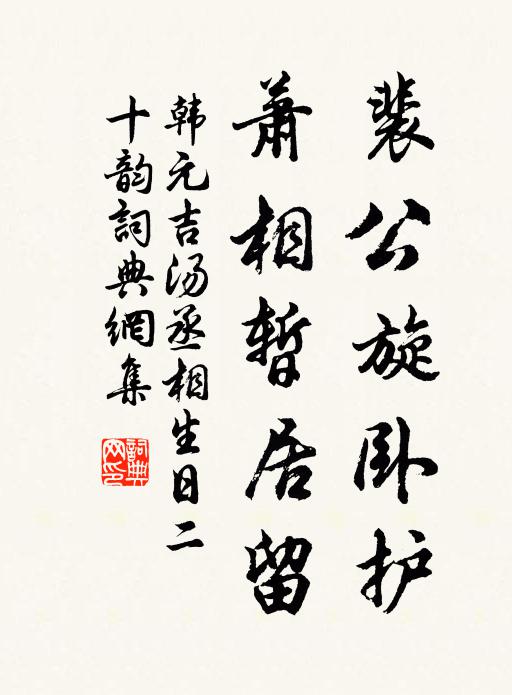 裴公旋卧护
萧相暂居留
韩元吉汤丞相生日二
十韵詞典網集
詞典網印